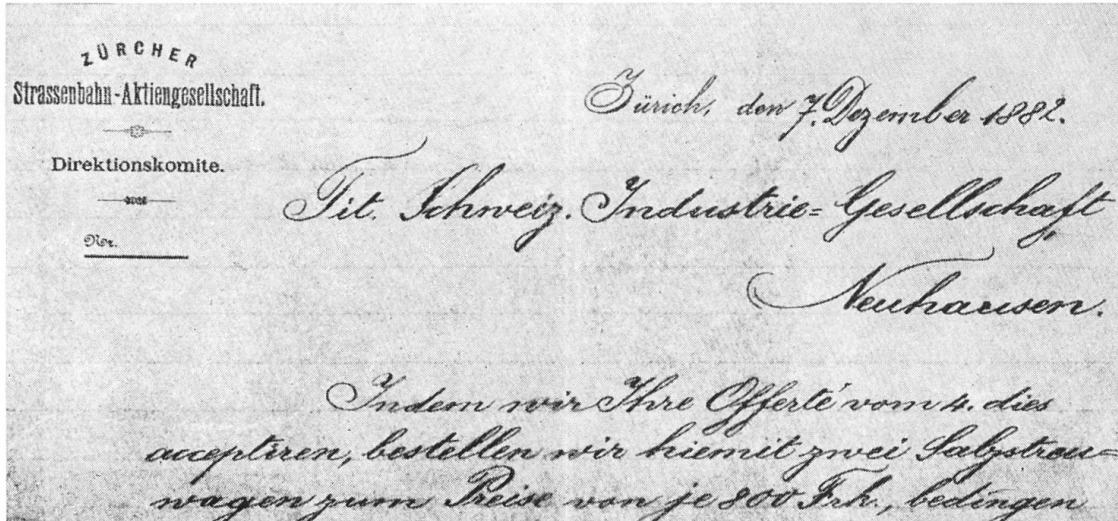 ZÜRCHER
Strassenbahn-Aktiengesellschaft.
Direktionskomite.
Nor.
Zürich, den 7. Dezember 1882.
Tit. Schweiz. Industrie= Gesellschaft,
Neuhausen.
Indem wir Ihre Offerte vom 4. dies
acceptiren, bestellen wir hiemit zwei Salzstreu=
wagen zum Preise von je 800 Frk., bedingen